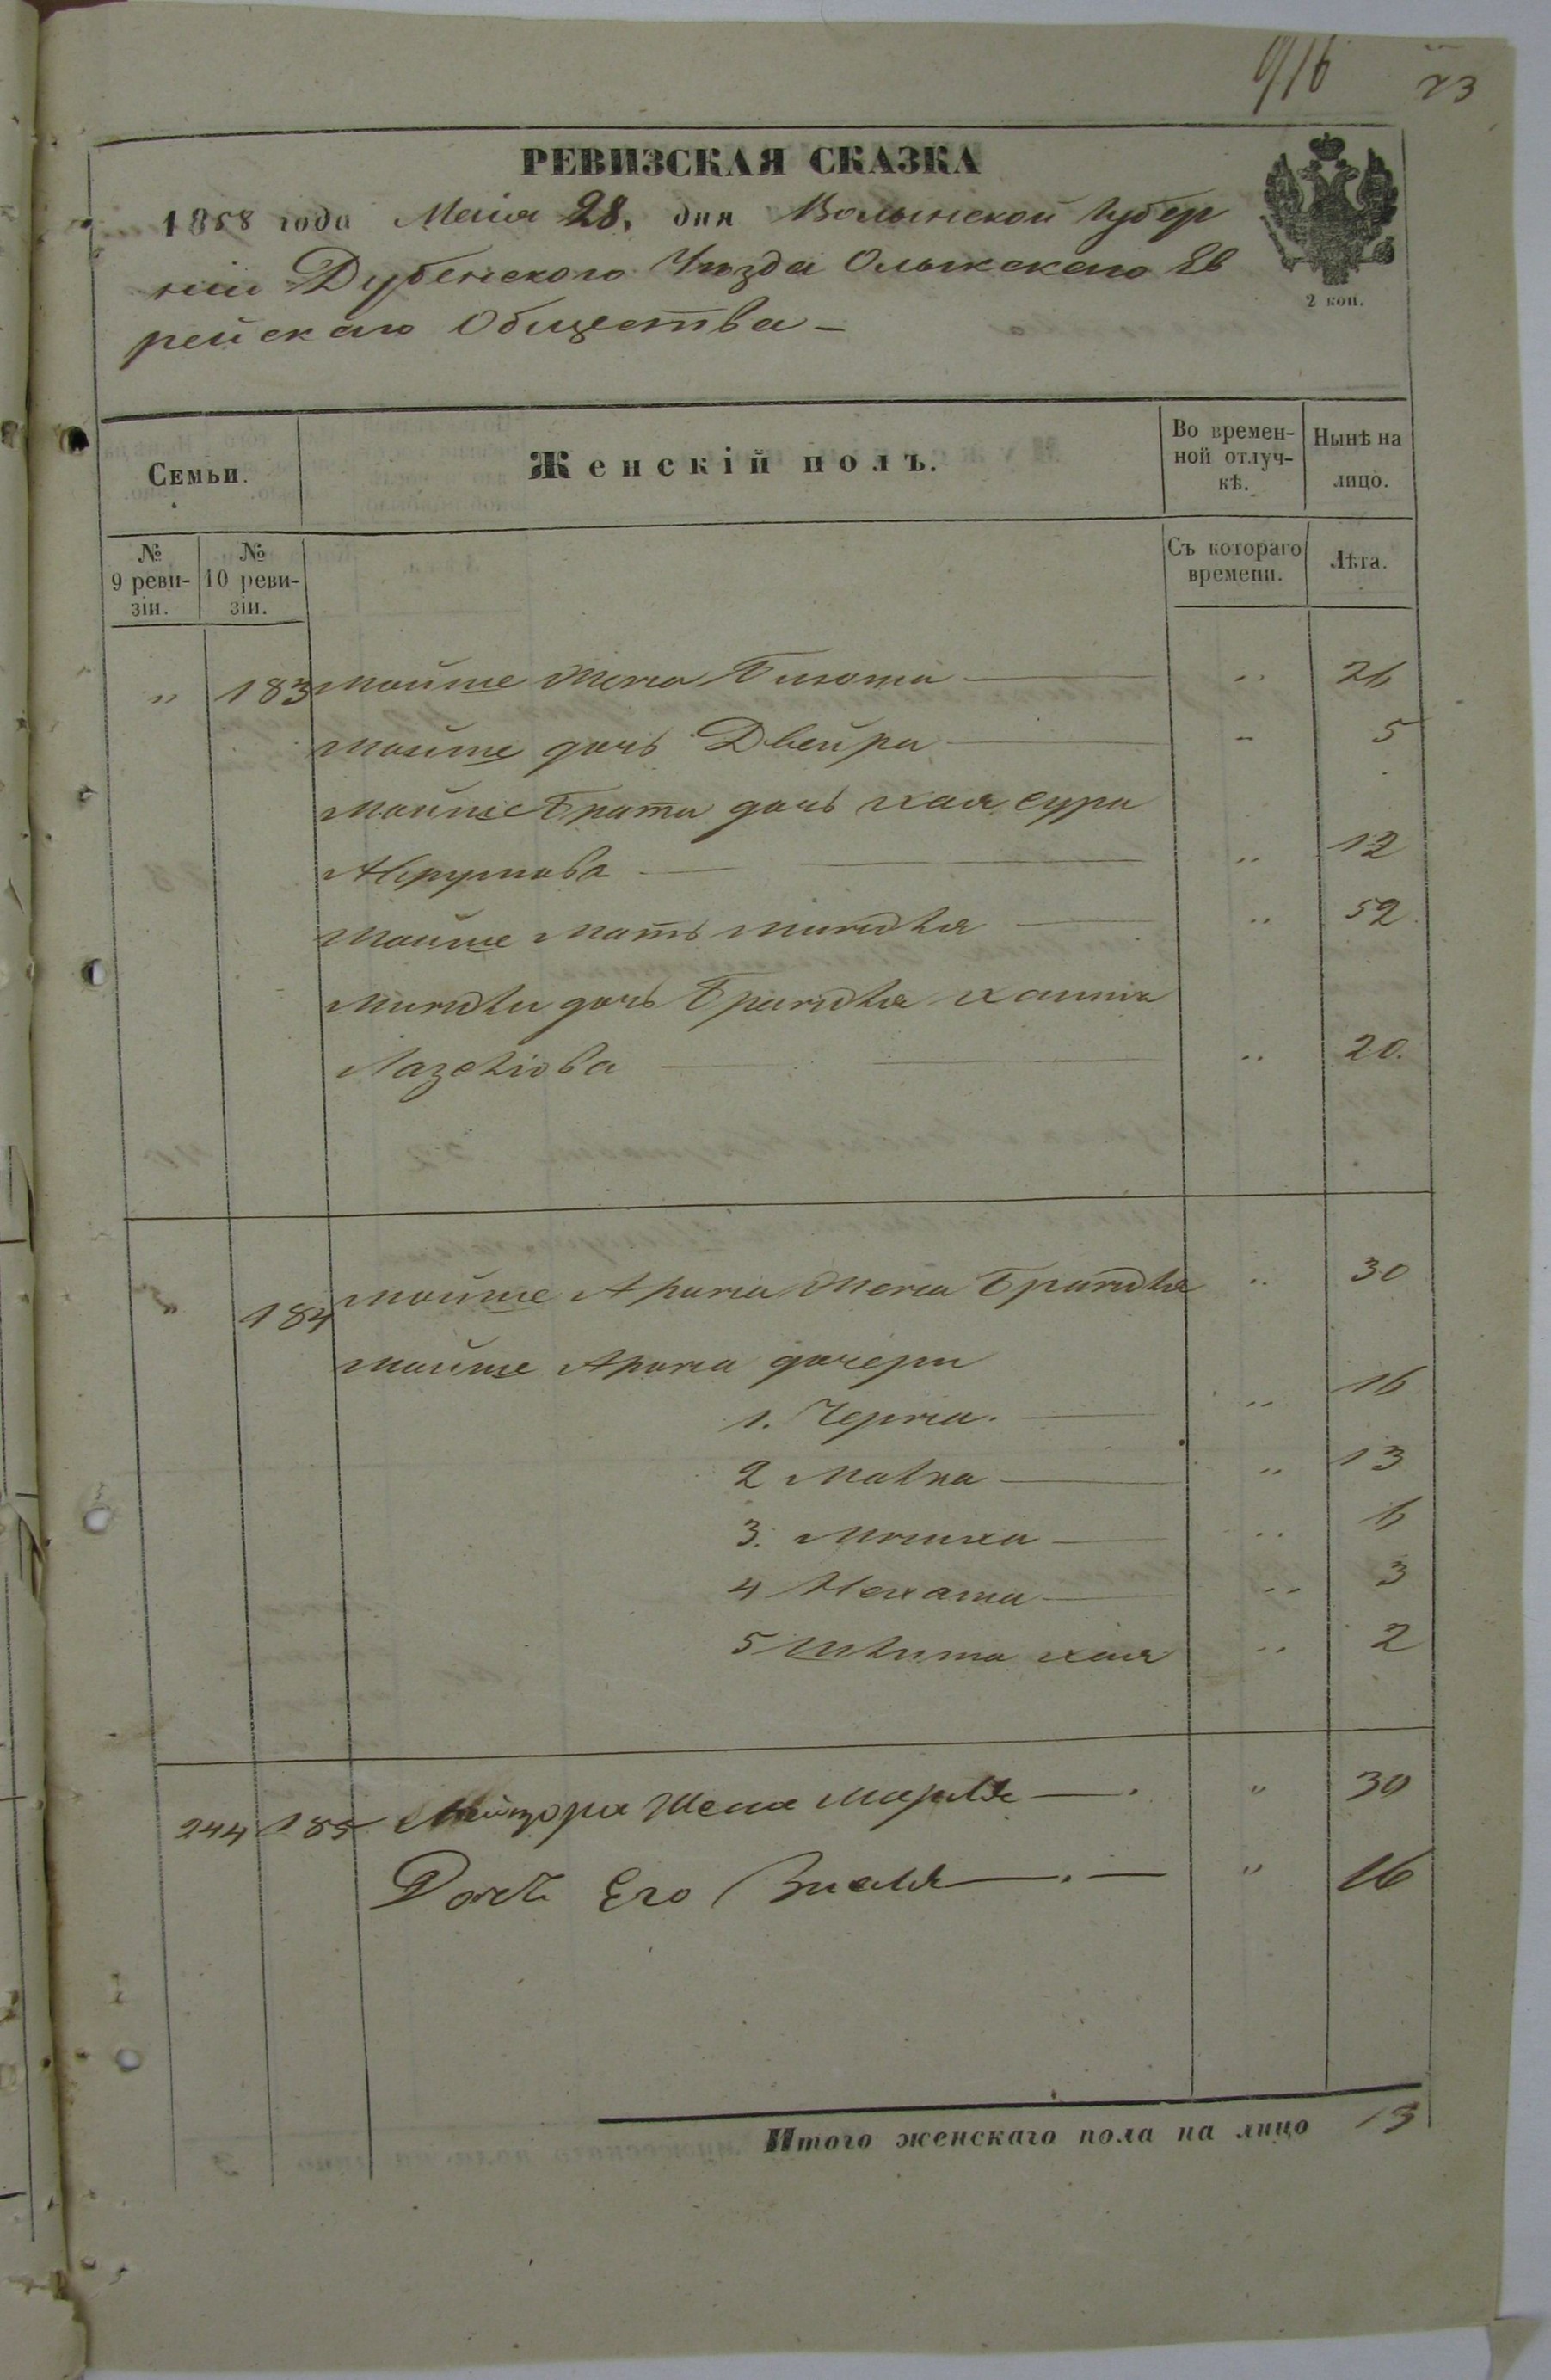 916 73
РЕВИЗСКАЯ СКАЗКА
1858 года Маія 28, дня Волынской Губер
ніи Дубенского Уѣзда Олыкскаго Ев
рейскаго Общества –
2 коп.
Семьи.
Женскій полъ.
Во времен-
ной отлуч-
кѣ.
Нынѣ на
лицо.
№
9 реви-
зіи.
№
10 реви-
зіи.
Съ котораго
времени.
Лѣта.
" 183 Мойше Жена " 26
Мойше дочь Двейра – 5
Мойше Брата дочь Хая Сура
" 12
Мойше Мать Миндля " 52
Миндли дочь Брандля
" 20.
" 184 Мойше Арона Жена Брандля " 30
Мойше Арона дочери
1. Черна. " 16
2 Малка " 13
3. " 6
4 Нехама " 3
5 Хая " 2
244 185 Жена " 30
Дочь Его " 16
Итого женскаго пола на лицо 13